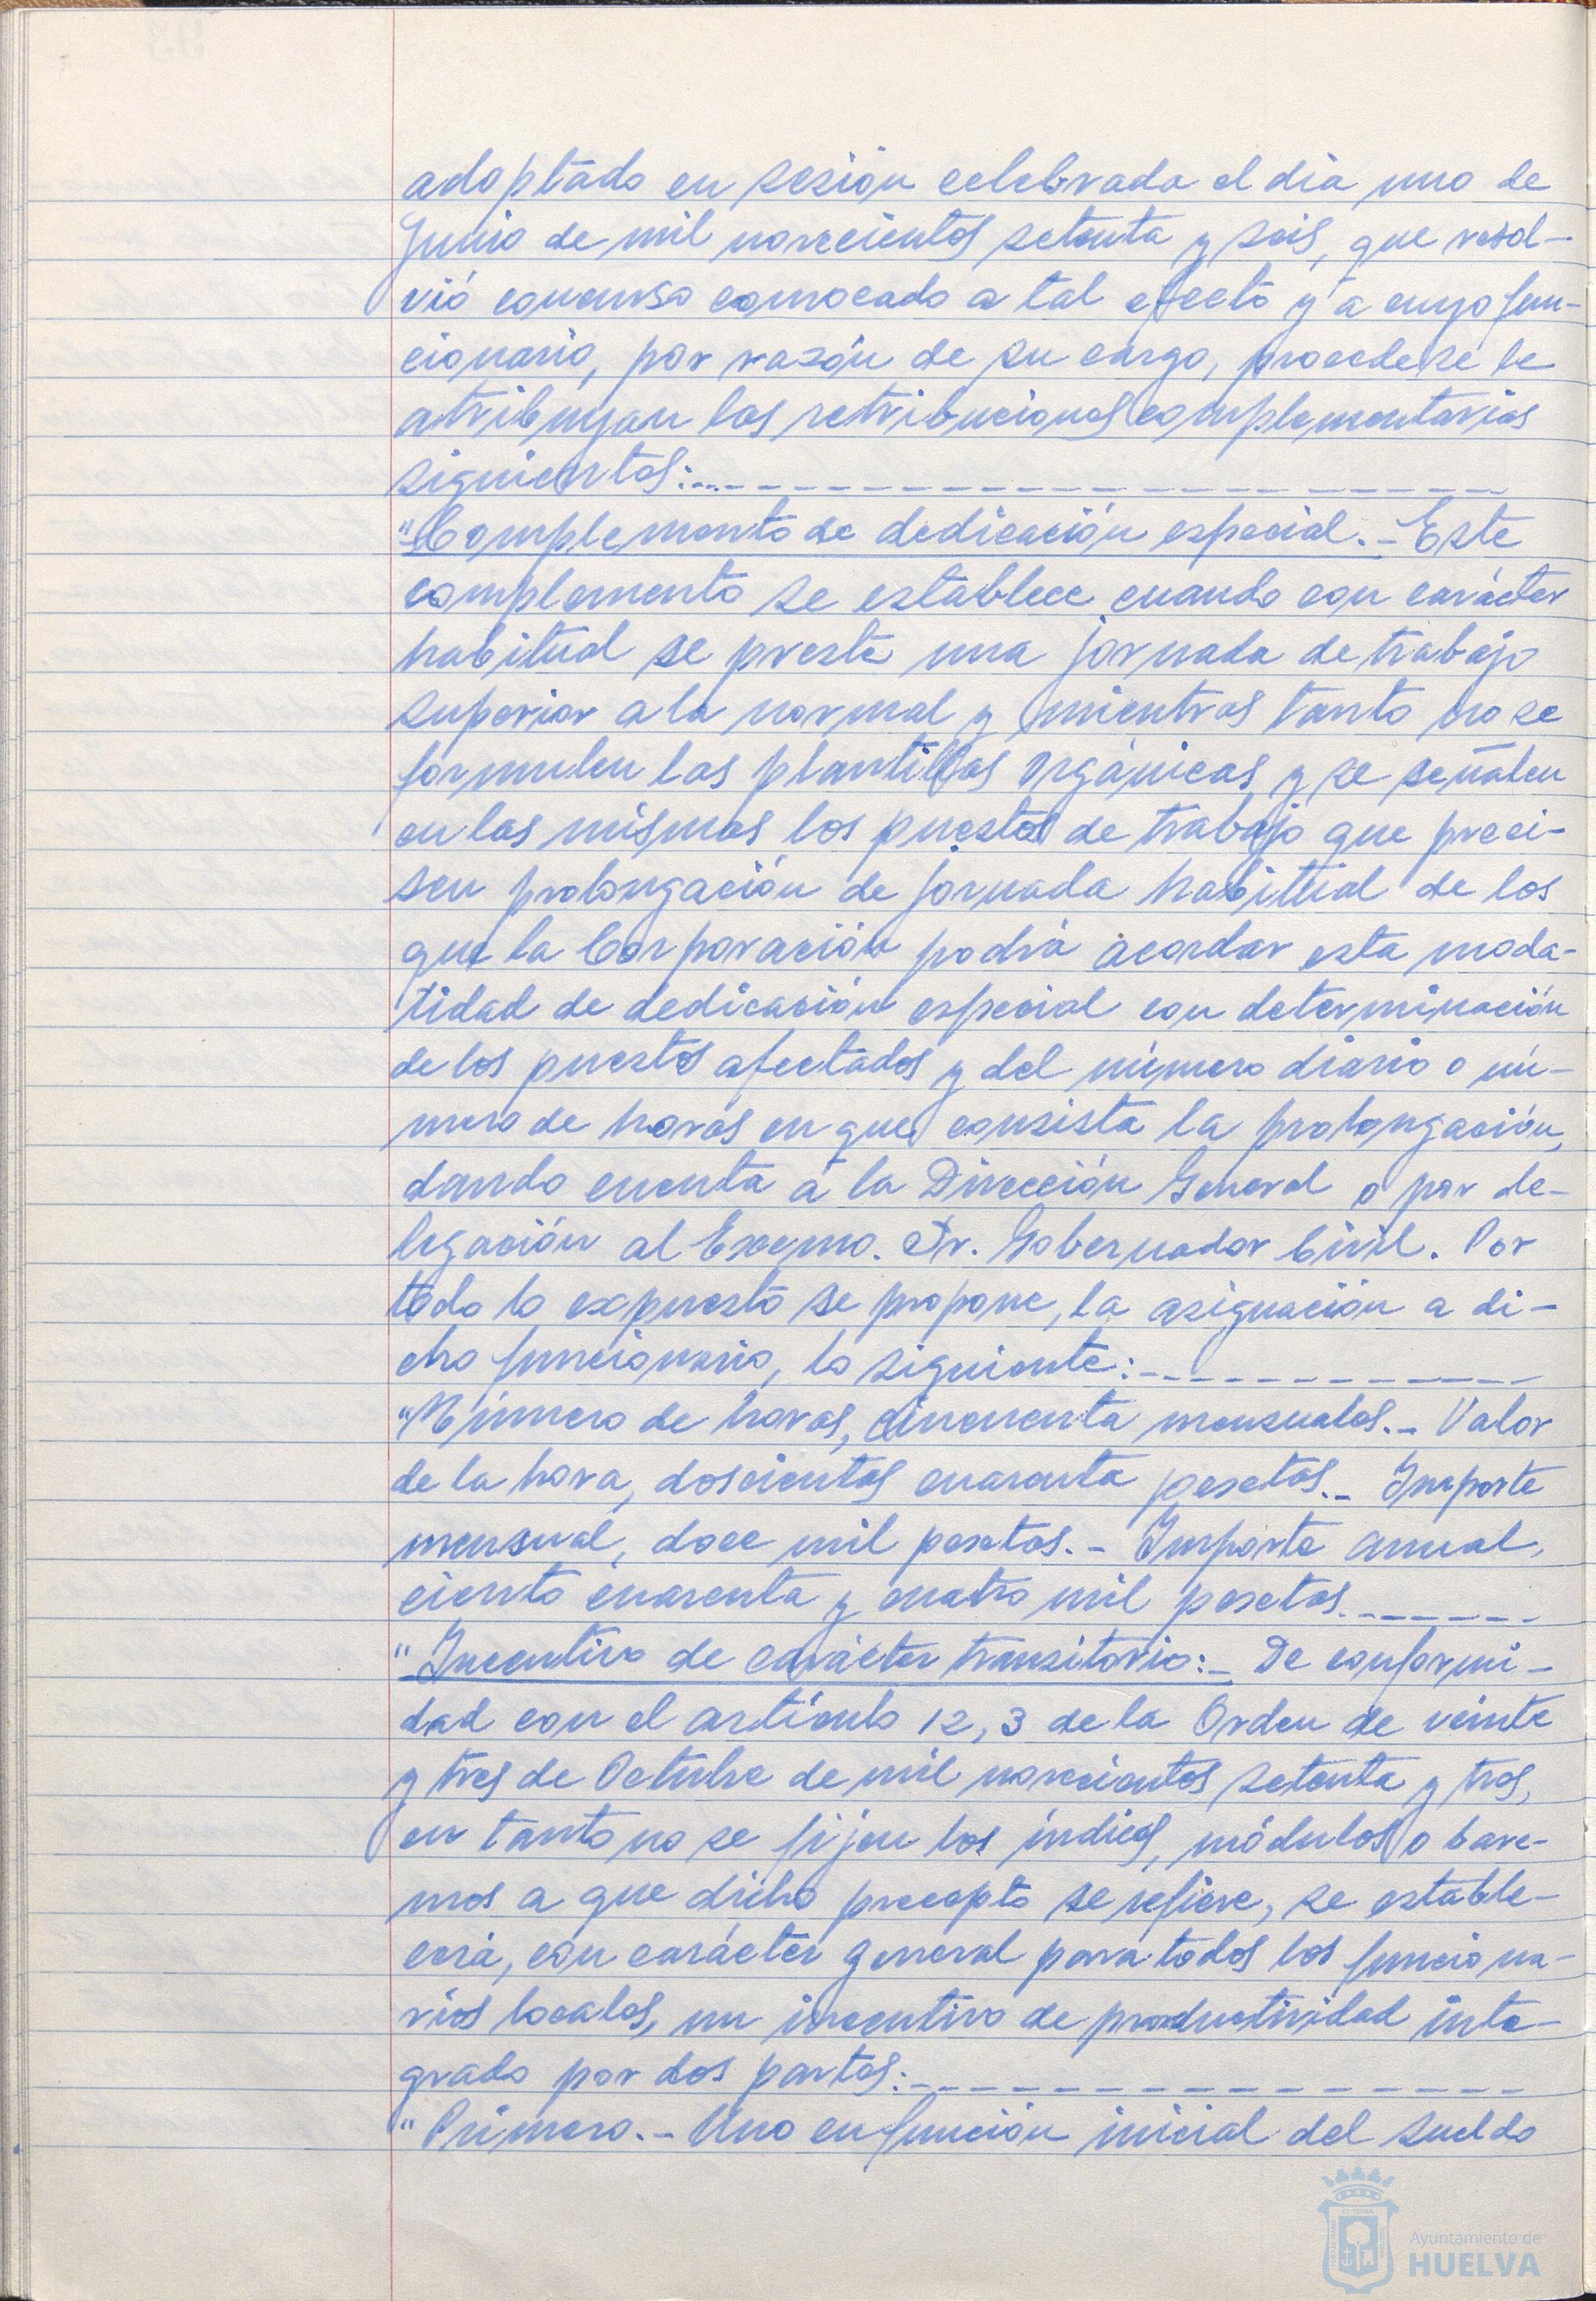 adoptado en sesión celebrada el dia uno de
Junio de mil novecientos setenta y seis, que resol-
vió concurso convocado a tal efecto y a cuyo fun-
cionario, por razón de su cargo, procede se le
atribuyan las retribuciones complementarias
siguientes:
"Complemento de dedicación especial.- Este
complemento se establece cuando con carácter
habitual se preste una jornada de trabajo
superior a la normal y mientras tanto no se
formulen las plantillas orgánicas y se señalen
en las mismas los puestos de trabajo que preci-
sen prolongación de jornada habitual de los
que la Corporación podrá acordar esta moda-
lidad de dedicación especial con determinación
de los puestos afectados y del número diario o nú-
mero de horas en que consista la prolongación,
dando cuenta a la Dirección General o por de-
legación al Excmo. Sr. Gobernador Civil. Por
todo lo expuesto se propone, la asignación a di-
cho funcionario, lo siguiente:
"Número de horas, cincuenta mensuales.- Valor
de la hora, doscientas cuarenta pesetas.- Importe
mensual, doce mil pesetas.- Importe anual,
ciento cuarenta y cuatro mil pesetas.
"Incentivo de carácter transitorio:- De conformi-
dad con el artículo 12,3 de la Orden de veinte
y tres de Octubre de mil novecientos setenta y tres,
en tanto no se fijen los índices, módulos o bare-
mos a que dicho precepto se refiere, se estable-
cerá, con carácter general para todos los funciona-
rios locales, un incentivo de productividad inte-
grado por dos partes:
"Primero.- Uno en función inicial del sueldo
Ayuntamiento de
HUELVA